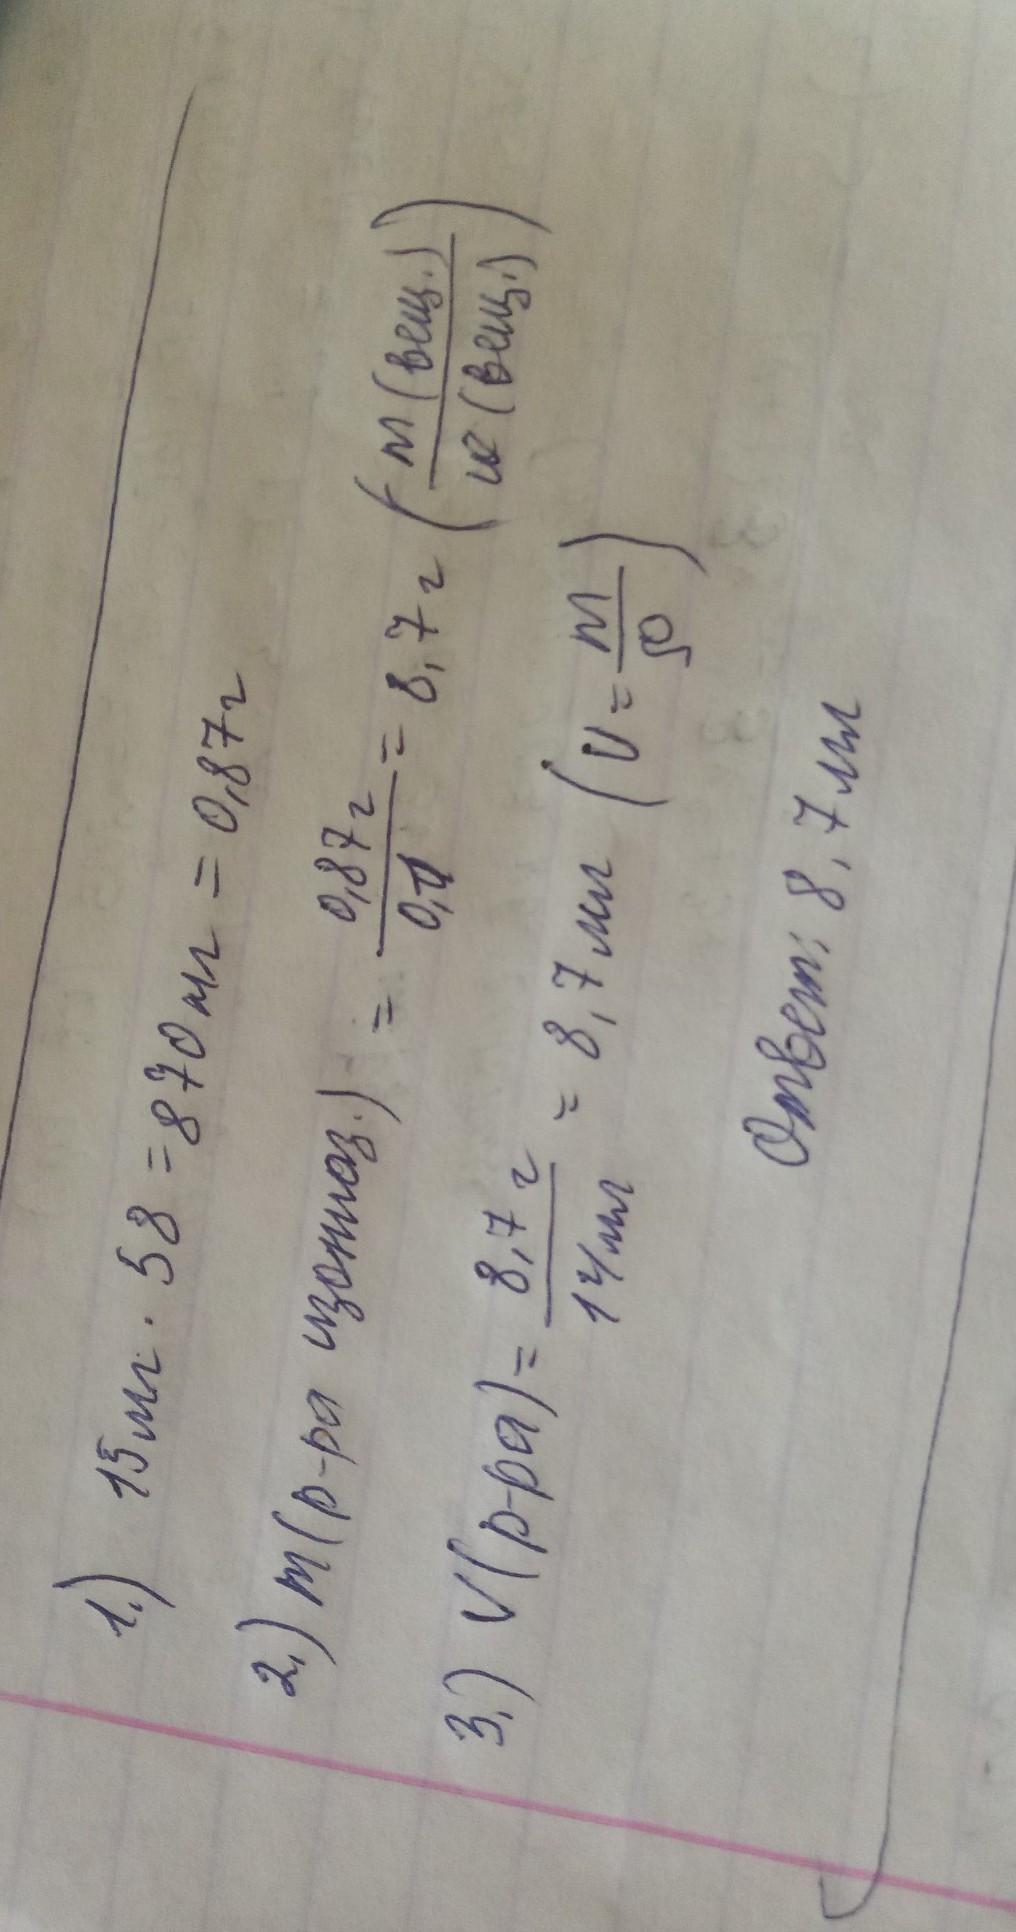 1.) 15мг · 58 = 870мг = 0,87г
2.) m(р-ра изониаз.) = 0,87г / 0,1 = 8,7г (m(вещ.) / w(вещ.))
3.) V(р-ра) = 8,7г / 1г/мл = 8,7мл (V = m / ρ)
Ответ: 8,7мл